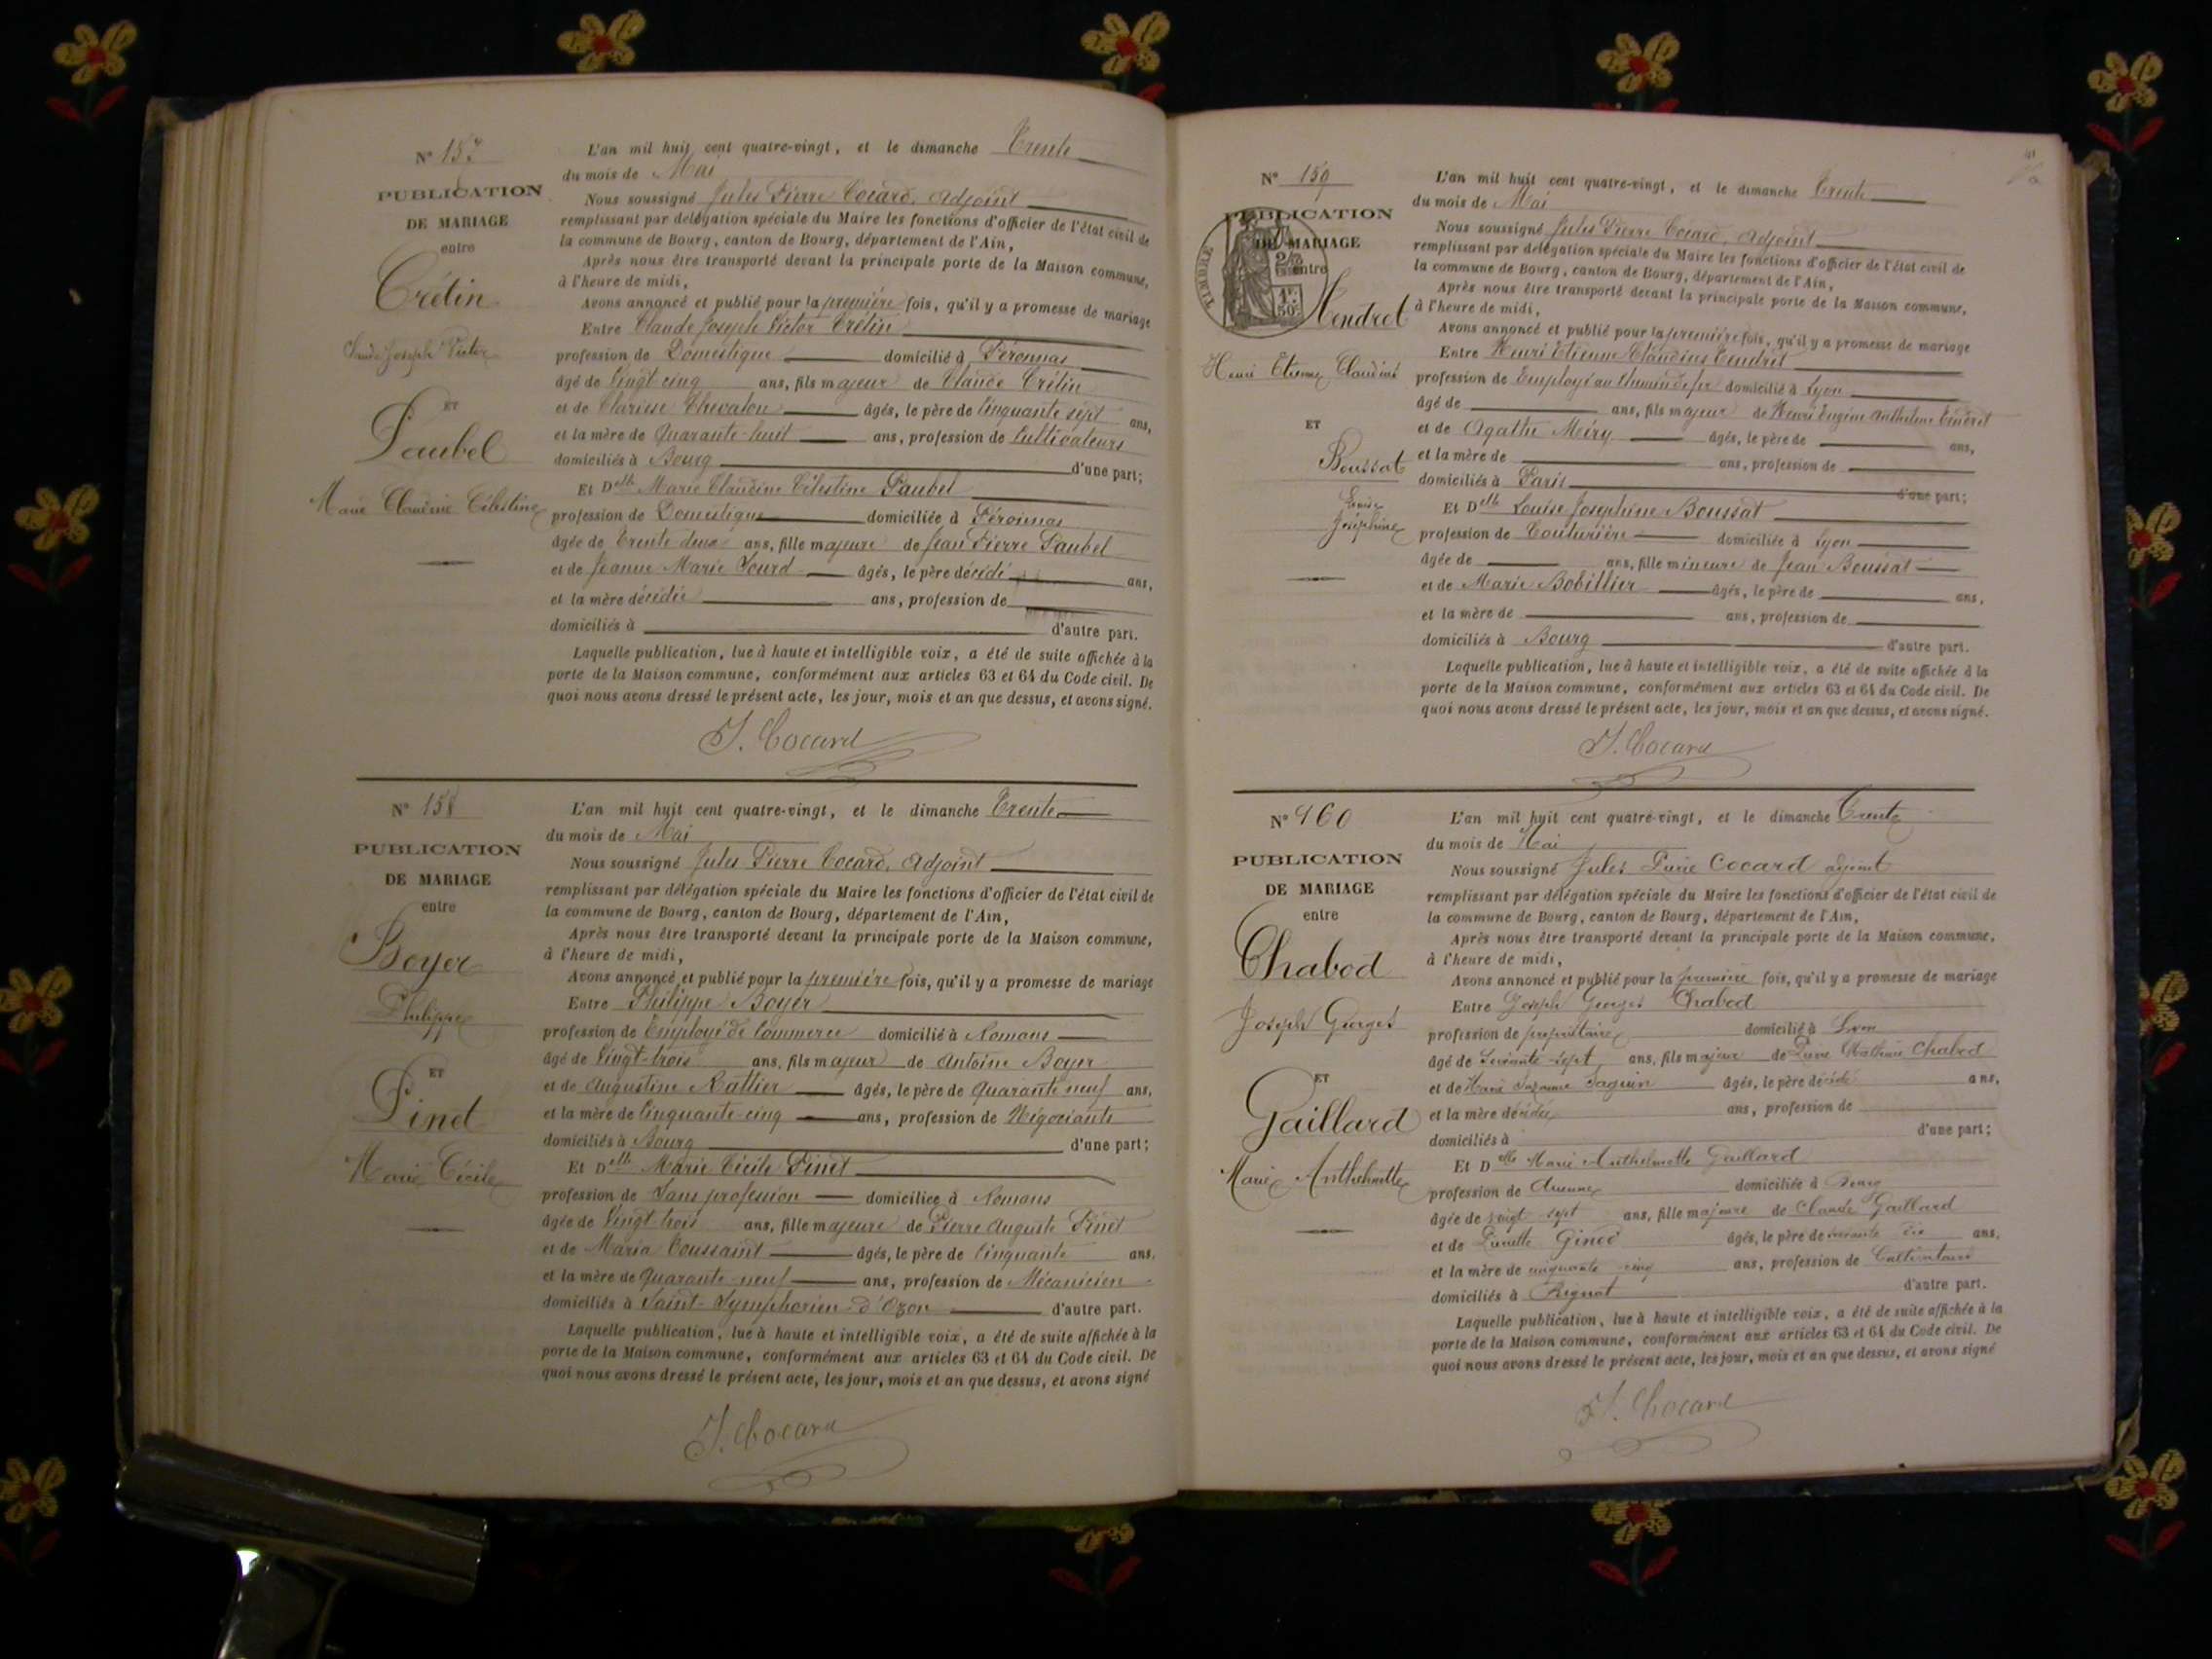 N° 157
PUBLICATION
DE MARIAGE
entre
Crétin
Claude Joseph Victor
ET
Paubel
Marie Claudine Célestine
L'an mil huit cent quatre-vingt, et le dimanche Trente
du mois de Mai
Nous soussigné Jules Pierre Cocard, Adjoint
remplissant par délégation spéciale du Maire les fonctions d'officier de l'état civil de
la commune de Bourg, canton de Bourg, département de l'Ain,
Après nous être transporté devant la principale porte de la Maison commune,
à l'heure de midi,
Avons annoncé et publié pour la première fois, qu'il y a promesse de mariage
Entre Claude Joseph Victor Crétin
profession de Domestique domicilié à Péronnas
âgé de Vingt cinq ans, fils majeur de Claude Crétin
et de Clarisse Chevalon âgés, le père de Cinquante sept ans,
et la mère de Quarante-huit ans, profession de Cultivateurs
domiciliés à Bourg d'une part;
Et Delle Marie Claudine Célestine Paubel
profession de Domestique domiciliée à Péronnas
âgée de Trente deux ans, fille majeure de Jean Pierre Paubel
et de Jeanne Marie Tourd âgés, le père décédé ans,
et la mère décédée ans, profession de
domiciliés à d'autre part.
Laquelle publication, lue à haute et intelligible voix, a été de suite affichée à la
porte de la Maison commune, conformément aux articles 63 et 64 du Code civil. De
quoi nous avons dressé le présent acte, les jour, mois et an que dessus, et avons signé.
J. Cocard
N° 158
PUBLICATION
DE MARIAGE
entre
Boyer
Philippe
ET
Pinet
Marie Cécile
L'an mil huit cent quatre-vingt, et le dimanche Trente
du mois de Mai
Nous soussigné Jules Pierre Cocard, Adjoint
remplissant par délégation spéciale du Maire les fonctions d'officier de l'état civil de
la commune de Bourg, canton de Bourg, département de l'Ain,
Après nous être transporté devant la principale porte de la Maison commune,
à l'heure de midi,
Avons annoncé et publié pour la première fois, qu'il y a promesse de mariage
Entre Philippe Boyer
profession de Employé de Commerce domicilié à Romans
âgé de Vingt-trois ans, fils majeur de Antoine Boyer
et de Augustine Rattier âgés, le père de Quarante neuf ans,
et la mère de Cinquante-cinq ans, profession de Négociants
domiciliés à Bourg d'une part;
Et Delle Marie Cécile Pinet
profession de Sans profession domiciliée à Romans
âgée de Vingt trois ans, fille majeure de Pierre Auguste Pinet
et de Maria Toussaint âgés, le père de Cinquante ans.
et la mère de Quarante-neuf ans, profession de Mécanicien
domiciliés à Saint-Symphorien-d'Ozon d'autre part.
Laquelle publication, lue à haute et intelligible voix, a été de suite affichée à la
porte de la Maison commune, conformément aux articles 63 et 64 du Code civil. De
quoi nous avons dressé le présent acte, les jour, mois et an que dessus, et avons signé
J. Cocard
N° 159
PUBLICATION
DE MARIAGE
entre
TIMBRE
1F.
50c
Tendret
Henri Etienne Claudius
ET
Boussat
Louise
Joséphine
L'an mil huit cent quatre-vingt, et le dimanche Trente
du mois de Mai
Nous soussigné Jules Pierre Cocard, Adjoint
remplissant par délégation spéciale du Maire les fonctions d'officier de l'état civil de
la commune de Bourg, canton de Bourg, département de l'Ain,
Après nous être transporté devant la principale porte de la Maison commune,
à l'heure de midi,
Avons annoncé et publié pour la première fois, qu'il y a promesse de mariage
Entre Henri Etienne Claudius Tendret
profession de Employé au Chemin de fer domicilié à Lyon
âgé de ans, fils majeur de Henri Eugène Anthelme Tendret
et de Agathe Méry âgés, le père de ans,
et la mère de ans, profession de
domiciliés à Paris d'une part;
Et Delle Louise Joséphine Boussat
profession de Couturière domiciliée à Lyon
âgée de ans, fille mineure de Jean Boussat
et de Marie Bobillier âgés, le père de ans,
et la mère de ans, profession de
domiciliés à Bourg d'autre part.
Laquelle publication, lue à haute et intelligible voix, a été de suite affichée à la
porte de la Maison commune, conformément aux articles 63 et 64 du Code civil. De
quoi nous avons dressé le présent acte, les jour, mois et an que dessus, et avons signé.
J. Cocard
N° 160
PUBLICATION
DE MARIAGE
entre
Chabod
Joseph Georges
ET
Gaillard
Marie Anthelmette
L'an mil huit cent quatre-vingt, et le dimanche Trente
du mois de Mai
Nous soussigné Jules Pierre Cocard adjoint
remplissant par délégation spéciale du Maire les fonctions d'officier de l'état civil de
la commune de Bourg, canton de Bourg, département de l'Ain,
Après nous être transporté devant la principale porte de la Maison commune,
à l'heure de midi,
Avons annoncé et publié pour la première fois, qu'il y a promesse de mariage
Entre Joseph Georges Chabod
profession de propriétaire domicilié à Lyon
âgé de Soixante-sept ans, fils majeur de Pierre Mathieu Chabod
et de Marie Suzanne âgés, le père décédé ans,
et la mère décédée ans, profession de
domiciliés à d'une part;
Et Delle Marie Anthelmette Gaillard
profession de domiciliée à Bourg
âgée de vingt-sept ans, fille majeure de Claude Gaillard
et de Pierrette Ginod âgés, le père de soixante dix ans,
et la mère de cinquante cinq ans, profession de Cultivateurs
domiciliés à Rignat d'autre part.
Laquelle publication, lue à haute et intelligible voix, a été de suite affichée à la
porte de la Maison commune, conformément aux articles 63 et 64 du Code civil. De
quoi nous avons dressé le présent acte, les jour, mois et an que dessus, et avons signé
J. Cocard